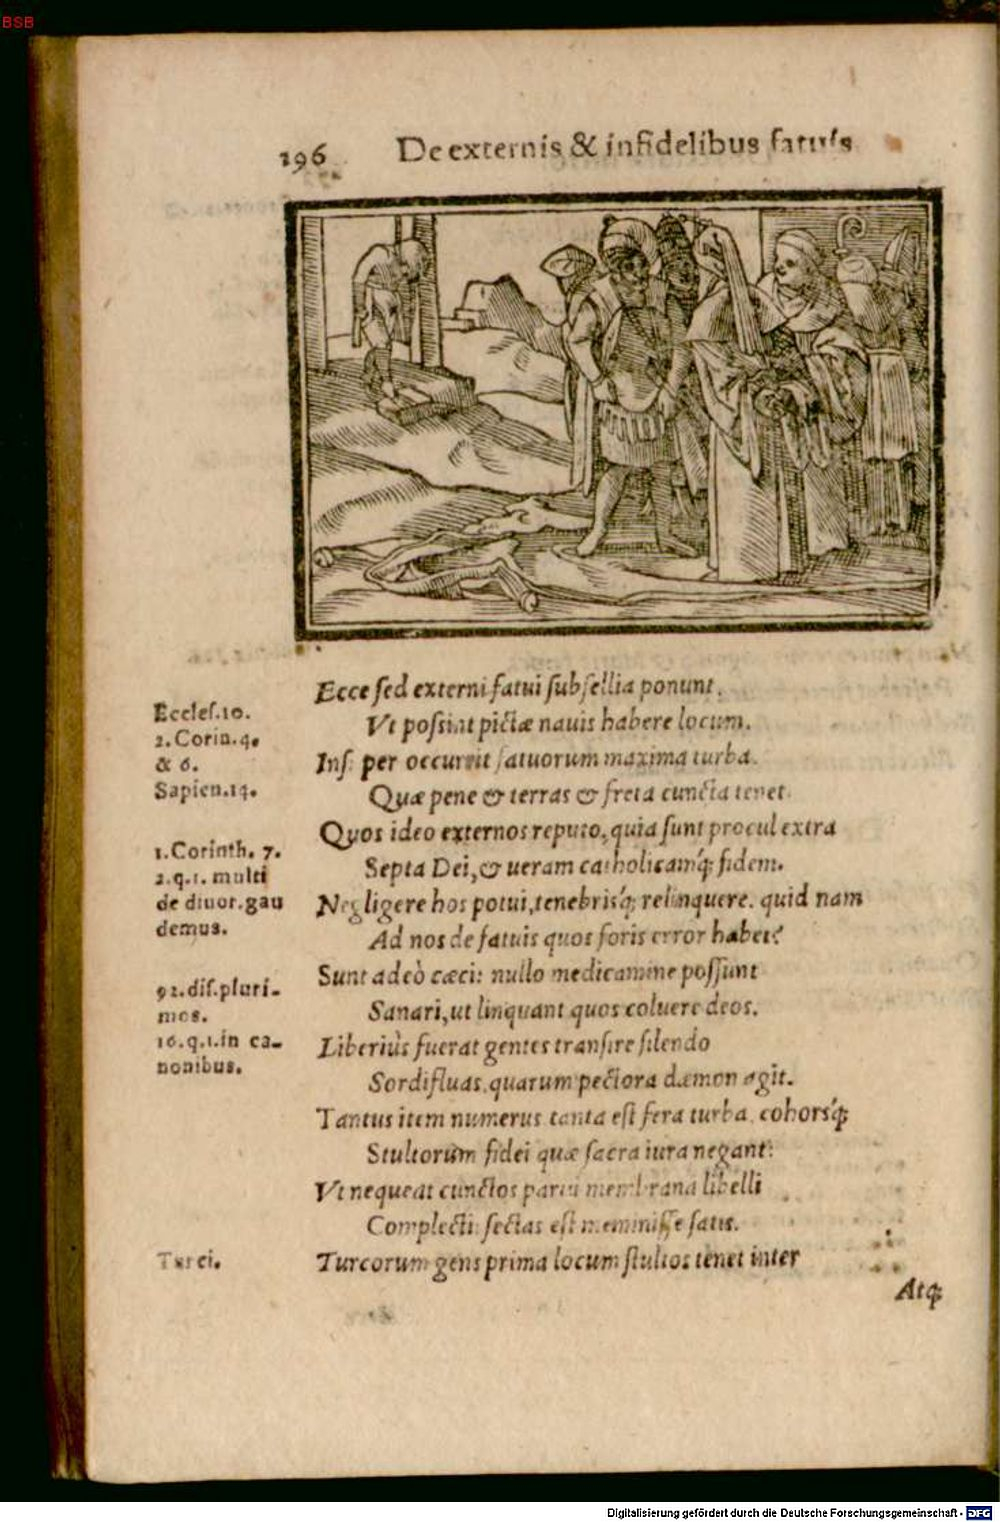 BSB
196 De externis & infidelibus fatuis
Ecce sed externi fatui subsellia ponunt,
Vt possint pictæ nauis habere locum.
Insuper occurrit fatuorum maxima turba.
Quæ pene & terras & freta cuncta tenet.
Quos ideo externos reputo, quia sunt procul extra
Septa Dei, & ueram catholicamq́; fidem.
Negligere hos potui, tenebrisq́; relinquere. quid nam
Ad nos de fatuis quos foris error habet?
Sunt adeò cæci: nullo medicamine possunt
Sanari, ut linquant quos coluere deos.
Liberiùs fuerat gentes transire silendo
Sordifluas, quarum pectora dæmon agit.
Tantus item numerus tanta est fera turba, cohorsq́;
Stultorum fidei quæ sacra iura negant:
Vt nequeat cunctos parui membrana libelli
Complecti: sectas est meminisse satis.
Turcorum gens prima locum stultos tenet inter
Atq́;
Eccles.10.
2.Corin.4.
& 6.
Sapien.14.
1.Corinth. 7.
2.q.1. multi
de diuor.gau
demus.
92.dis.pluri-
mos.
16.q.1.in ca-
nonibus.
Turci.
Digitalisierung gefördert durch die Deutsche Forschungsgemeinschaft - DFG